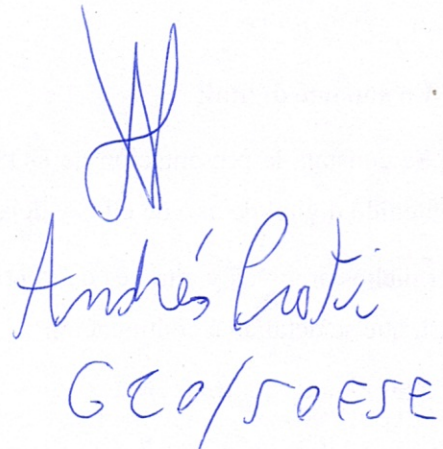 Andrés Prati
GEO/SOFSE